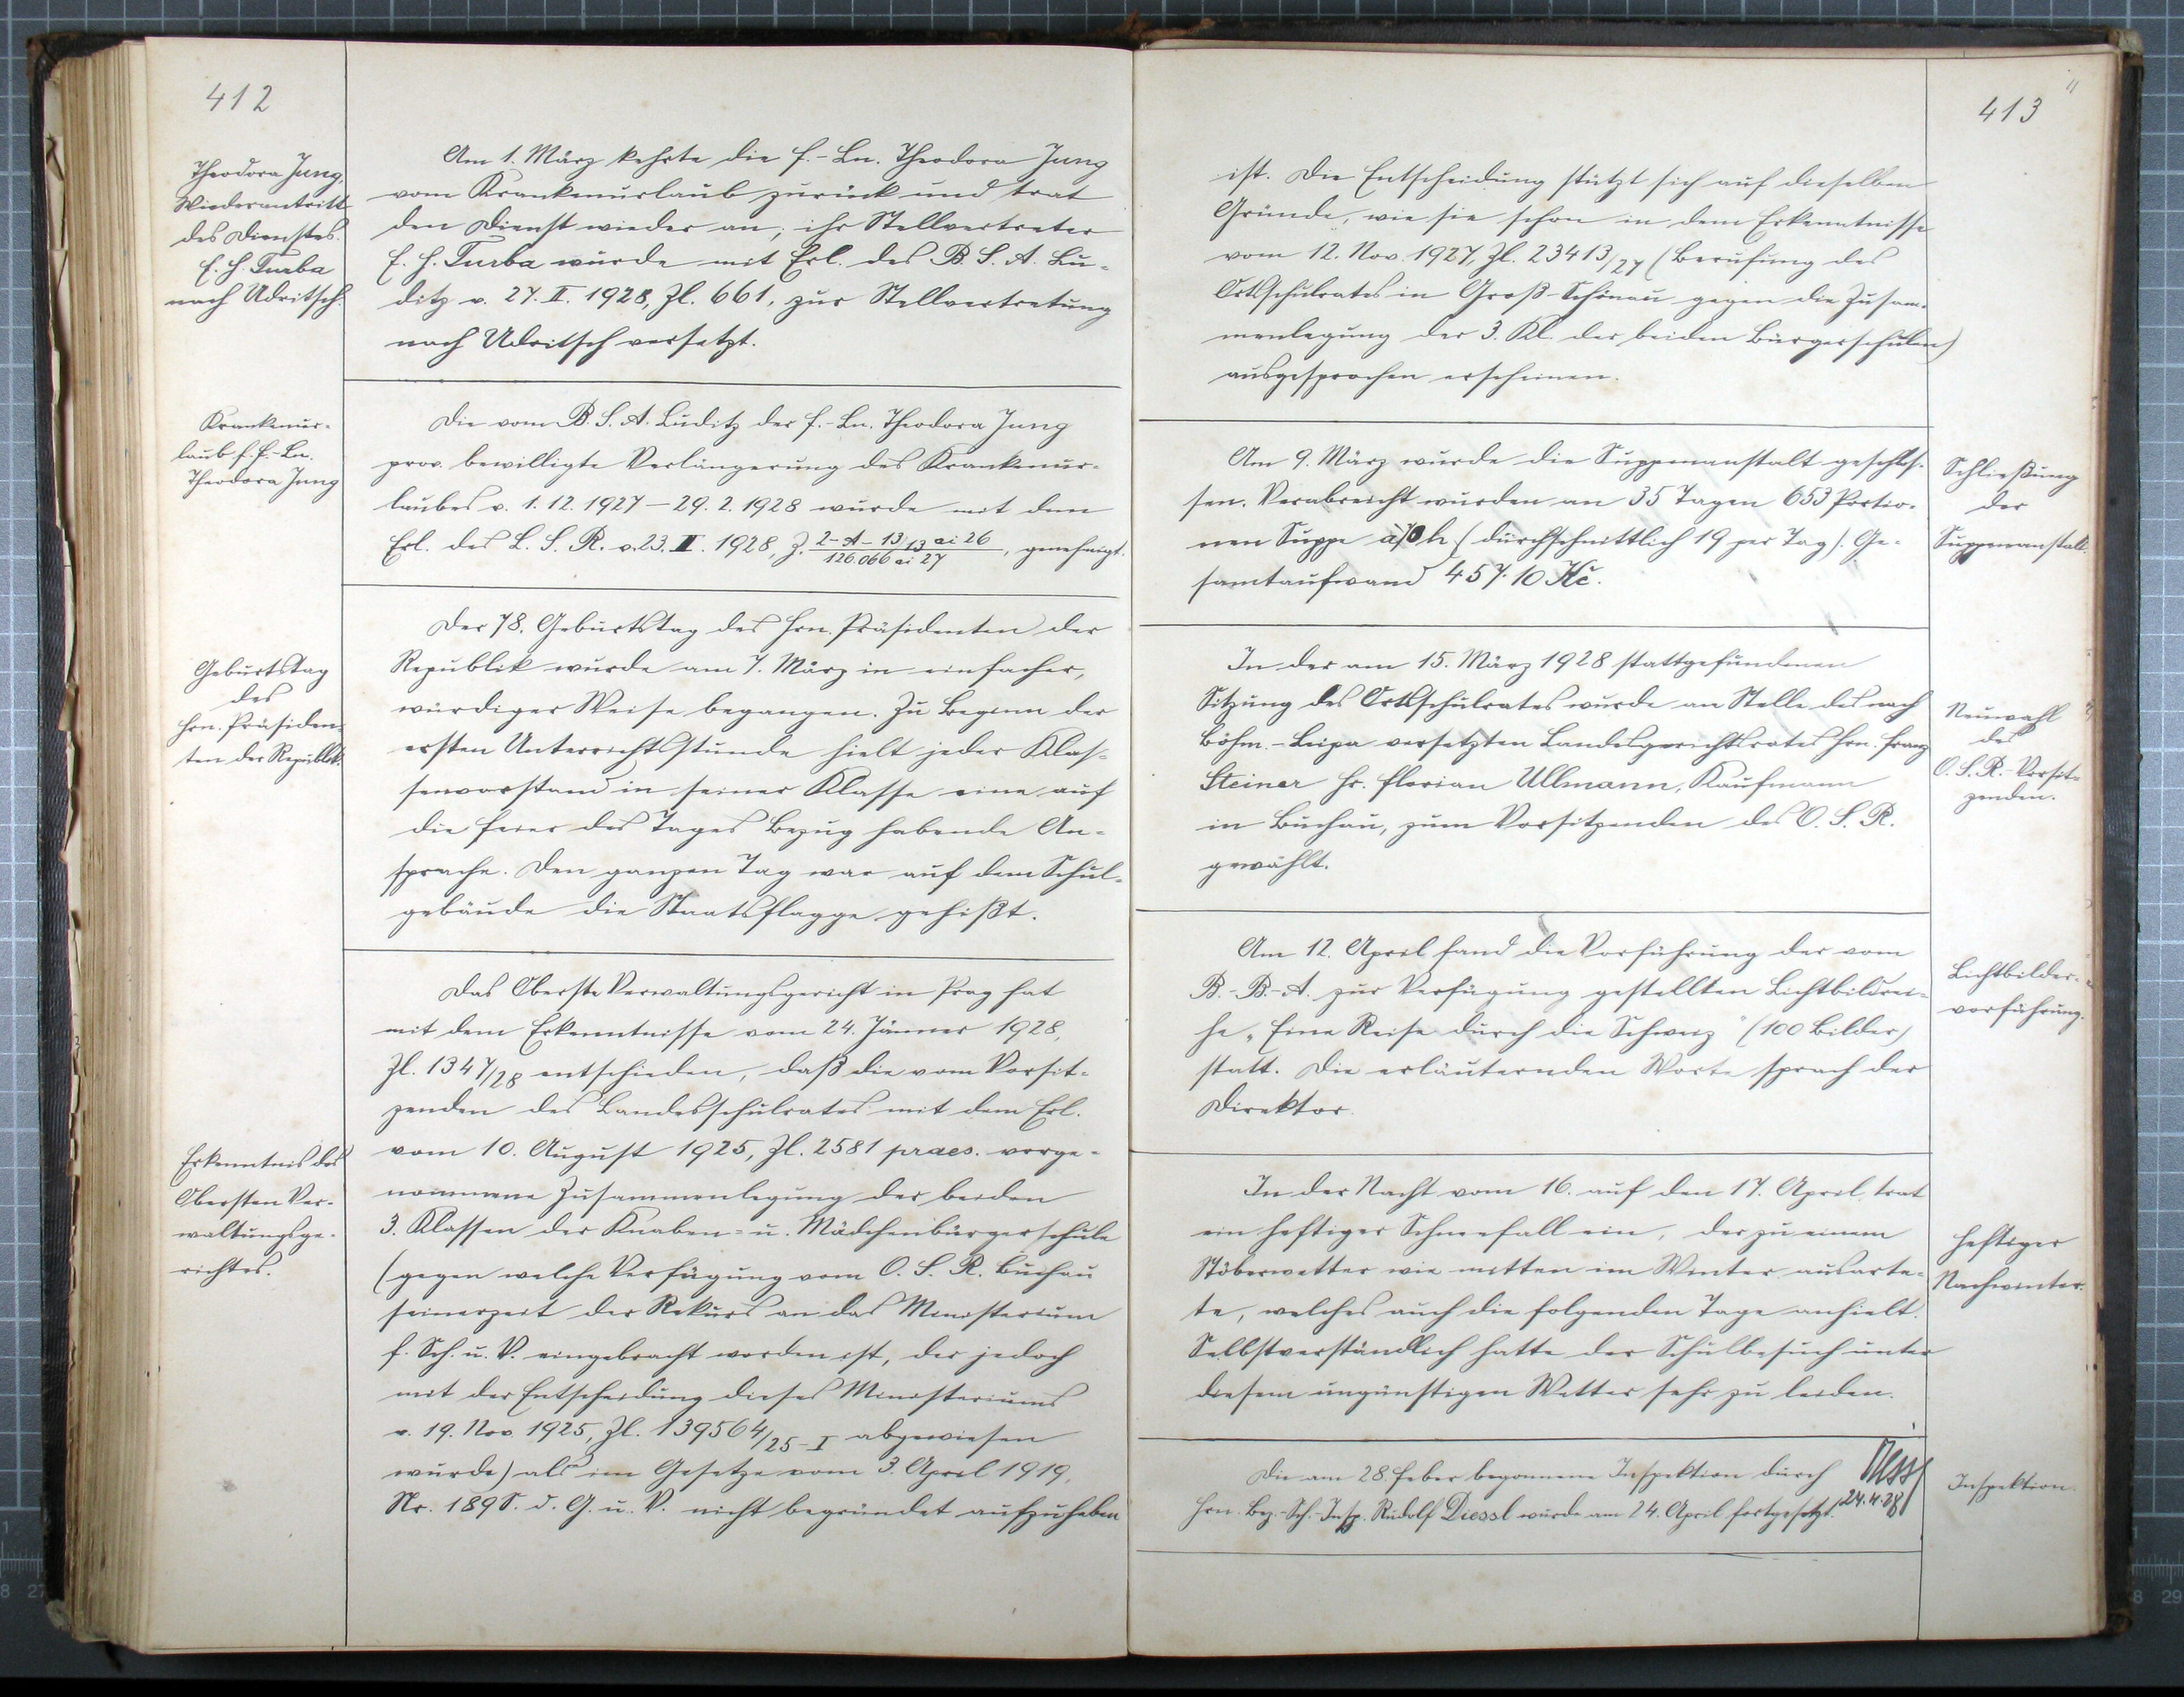 412
Theodora Jung,
Wiederantritt
des Dienstes.
E. H. Turba
nach Udritsch.
Am 1. März kehrte die f.-Ln. Theodora Jung
vom Krankenurlaub zurück und trat
den Dienst wieder an; ihr Stellvertreter
E. H. Turba wurde mit Erl. des B. S. A. Lu-
ditz v. 27. II. 1928, Zl. 661, zur Stellvertretung
nach Udritsch versetzt.
Krankenur-
laub f. f.-Ln.
Theodora Jung
Die vom B. S. A. Luditz der f.-Ln. Theodora Jung
prov. bewilligte Verlängerung des Krankenur-
laubes v. 1. 12. 1927 – 29. 2. 1928 wurde mit dem
Erl. des L. S. R. v. 23. II. 1928, Z. 2-A-13/126.066 ai 27 13 ai 26, genehmigt.
Geburtstag
des
Hrn. Präsiden-
ten der Republik.
Der 78. Geburtstag des Hrn. Präsidenten der
Republik wurde am 7. März in einfacher,
würdiger Weise begangen. Zu Beginn der
ersten Unterrichtsstunde hielt jeder Klas-
senvorstand in seiner Klasse eine auf
die Feier des Tages Bezug habende An-
sprache. Den ganzen Tag war auf dem Schul-
gebäude die Staatsflagge gehißt.
Das Oberste Verwaltungsgericht in Prag hat
mit dem Erkenntnisse vom 24. Jänner 1928,
Zl. 1347/28 entschieden, daß die vom Vorsit-
zenden des Landesschulrates mit dem Erl.
vom 10. August 1925, Zl. 2581 praes. vorge-
nommene Zusammenlegung der beiden
3. Klassen der Knaben- u. Mädchenbürgerschule
(gegen welche Verfügung vom O. S. R. Buchau
seinerzeit der Rekurs an das Ministerium
f. Sch. u. V. eingebracht worden ist, der jedoch
mit der Entscheidung dieses Ministeriums
v. 19. Nov. 1925, Zl. 139564/25-I abgewiesen
wurde) als im Gesetze vom 3. April 1919,
Nr. 189 S. d. G. u. V. nicht begründet aufzuheben
Erkenntnis des
Obersten Ver-
waltungsge-
richtes.
413
ist. Die Entscheidung stützt sich auf dieselben
Gründe, wie sie schon in dem Erkenntnisse
vom 12. Nov. 1927, Zl. 23413/27 (Berufung des
Ortsschulrates in Groß-Schönau gegen die Zusam-
menlegung der 3. Kl. der beiden Bürgerschulen)
ausgesprochen erscheinen.
Am 9. März wurde die Suppenanstalt geschlos-
sen. Verabreicht wurden an 35 Tagen 653 Portio-
nen Suppe à 70 h (durchschnittlich 19 per Tag). Ge-
samtaufwand 457.10 Kč.
Schließung
der
Suppenanstalt.
In der am 15. März 1928 stattgefundenen
Sitzung des Ortsschulrates wurde an Stelle des nach
Böhm.-Leipa versetzten Landesgerichtsrates Hrn. Franz
Steiner Hr. Florian Ullmann, Kaufmann
in Buchau, zum Vorsitzenden des O. S. R.
gewählt.
Neuwahl
des
O. S. R.-Vorsit-
zenden.
Am 12. April fand die Vorführung der vom
B.-B.-A. zur Verfügung gestellten Lichtbildrei-
he „Eine Reise durch die Schweiz" (100 Bilder)
statt. Die erläuternden Worte sprach der
Direktor.
Lichtbilder-
vorführung.
In der Nacht vom 16. auf den 17. April trat
ein heftiger Schneefall ein, der zu einem
Stöberwetter wie mitten im Winter ausarte-
te, welches auch die folgenden Tage anhielt.
Selbstverständlich hatte der Schulbesuch unter
diesem ungünstigen Wetter sehr zu leiden.
Heftiger
Nachwinter.
Die am 28. Feber begonnene Inspektion durch
Hrn. Bez.-Sch.-Insp. Rudolf Diessl wurde am 24. April fortgesetzt.
Diessl
24.4.28
Inspektion.